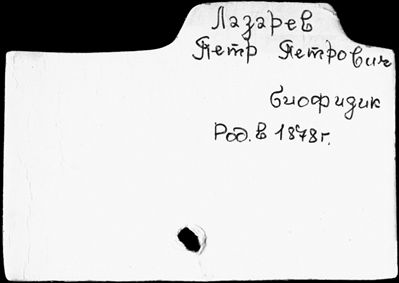 Лазарев
Петр Петрович
биофизик
Род. в 1878г.